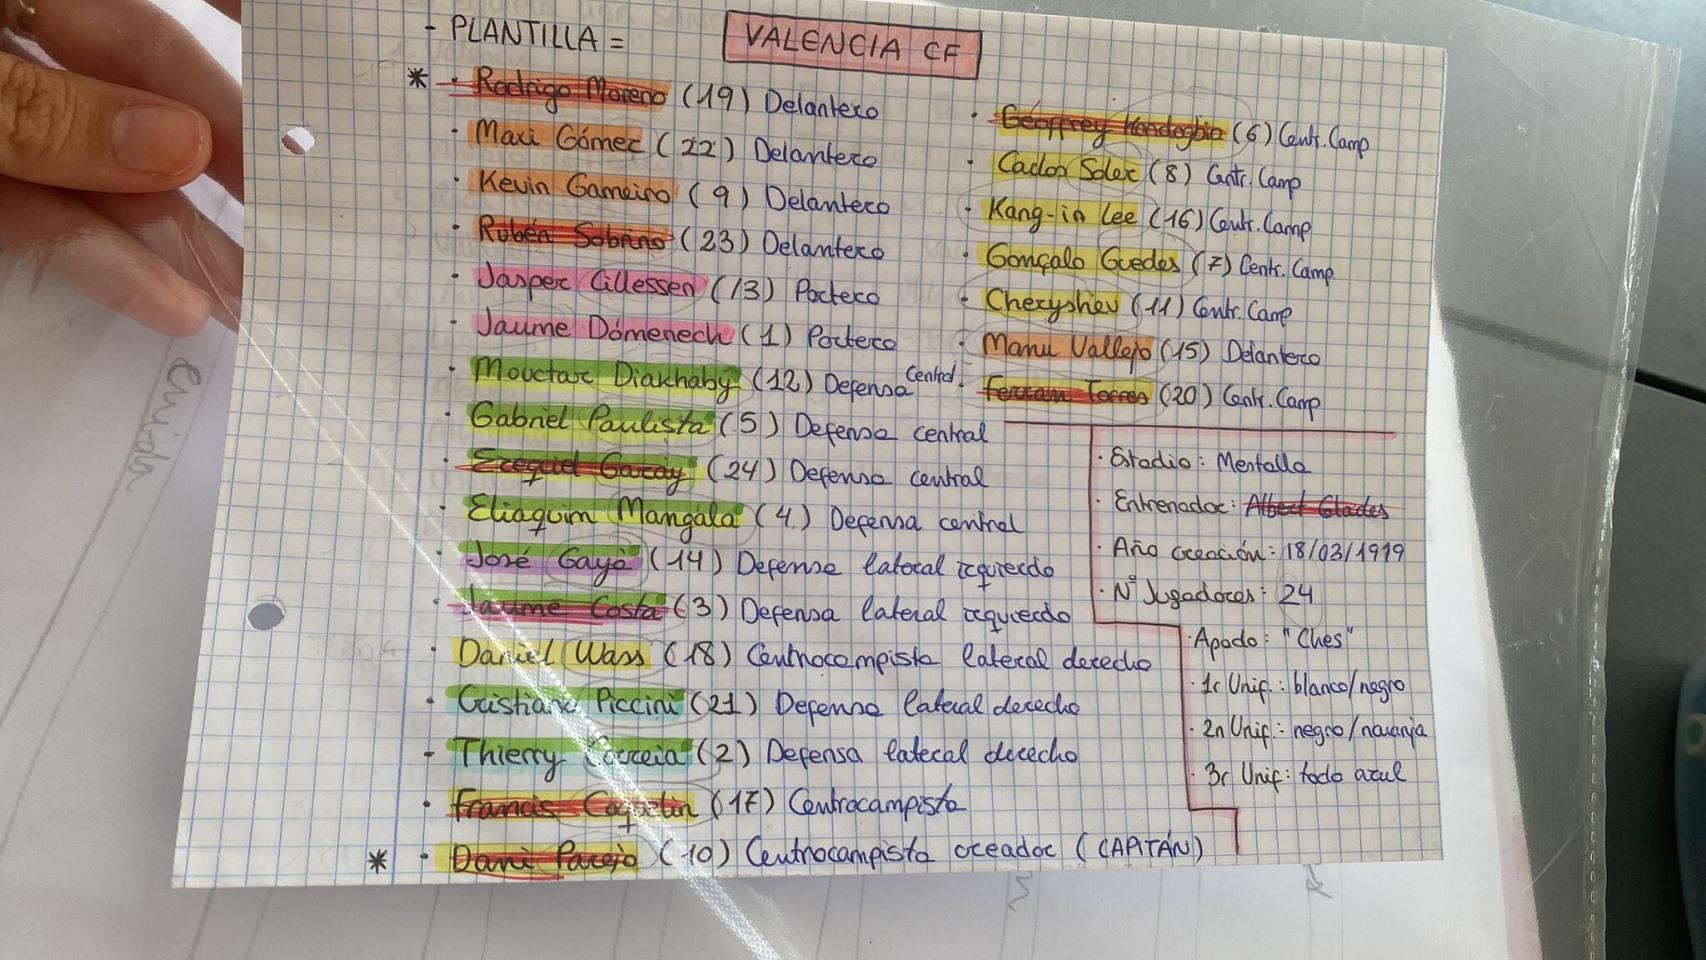 - PLANTILLA = VALENCIA CF
* · Rodrigo Moreno (19) Delantero
· Maxi Gómez (22) Delantero
· Kevin Gameiro (9) Delantero
· Rubén Sobrino (23) Delantero
· Jasper Cillessen (13) Portero
· Jaume Dómenech (1) Portero
· Mouctar Diakhaby (12) Defensa Central
· Gabriel Paulista (5) Defensa central
· Ezequiel Garay (24) Defensa central
· Eliaquim Mangala (4) Defensa central
· José Gayà (14) Defensa lateral izquierdo
· Jaume Costa (3) Defensa lateral izquierdo
· Daniel Wass (18) Centrocampista lateral derecho
· Cristiano Piccini (21) Defensa lateral derecho
- Thierry Correia (2) Defensa lateral derecho
· Francis Coquelin (17) Centrocampista
* · Dani Parejo (10) Centrocampista creador (CAPITÁN)
· Geoffrey Kondogbia (6) Centr. Camp
· Carlos Soler (8) Centr. Camp
· Kang-in Lee (16) Centr. Camp
· Gonçalo Guedes (7) Centr. Camp
· Cheryshev (11) Centr. Camp
· Manu Vallejo (15) Delantero
· Ferran Torres (20) Centr. Camp
· Estadio: Mestalla
· Entrenador: Albert Clades
· Año creación: 18/03/1919
· Nº Jugadores: 24
· Apodo: "Ches"
· 1r Unif.: blanco/negro
· 2n Unif.: negro/naranja
· 3r Unif: todo azul